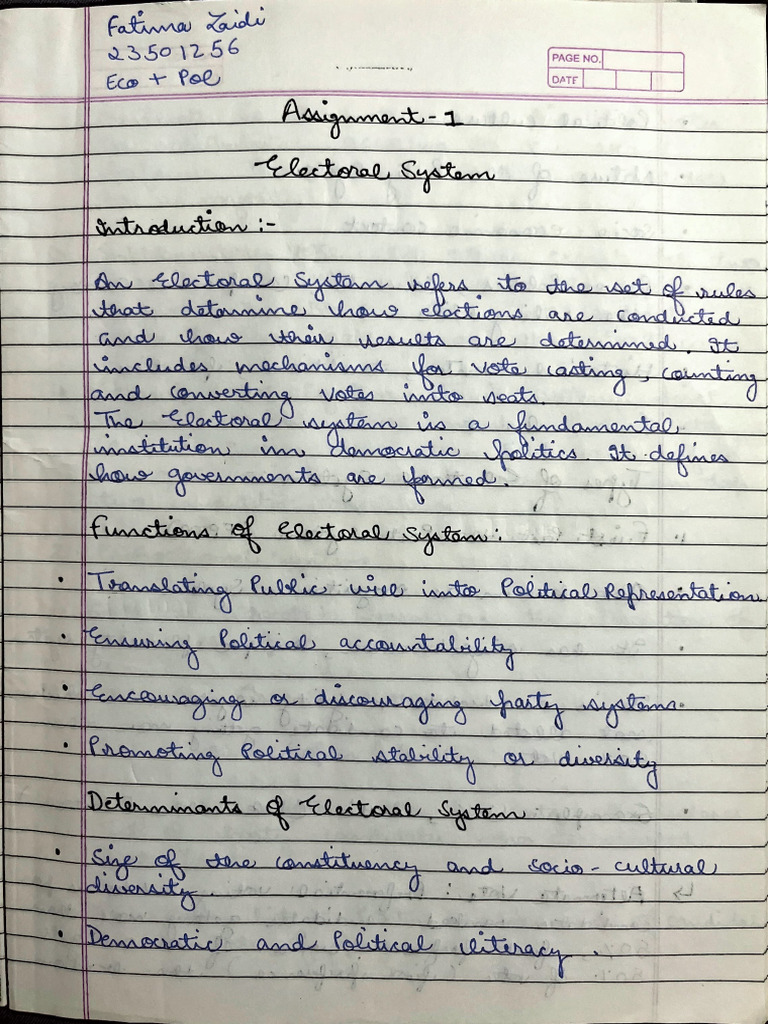 Fatima Zaidi
23501256
Eco + Pol
PAGE NO.
DATE
Assignment - 1
Electoral System
Introduction :-
An Electoral System refers to the set of rules
that determine how elections are conducted
and how their results are determined. It
includes mechanisms for vote casting, counting
and converting votes into seats.
The Electoral system is a fundamental
institution in democratic politics. It defines
how governments are formed.
Functions of Electoral System :
• Translating Public will into Political Representation
• Ensuring Political accountability
• Encouraging or discouraging party systems.
• Promoting Political stability or diversity
Determinants of Electoral System
• Size of the constituency and socio - cultural
diversity.
• Democratic and Political literacy.